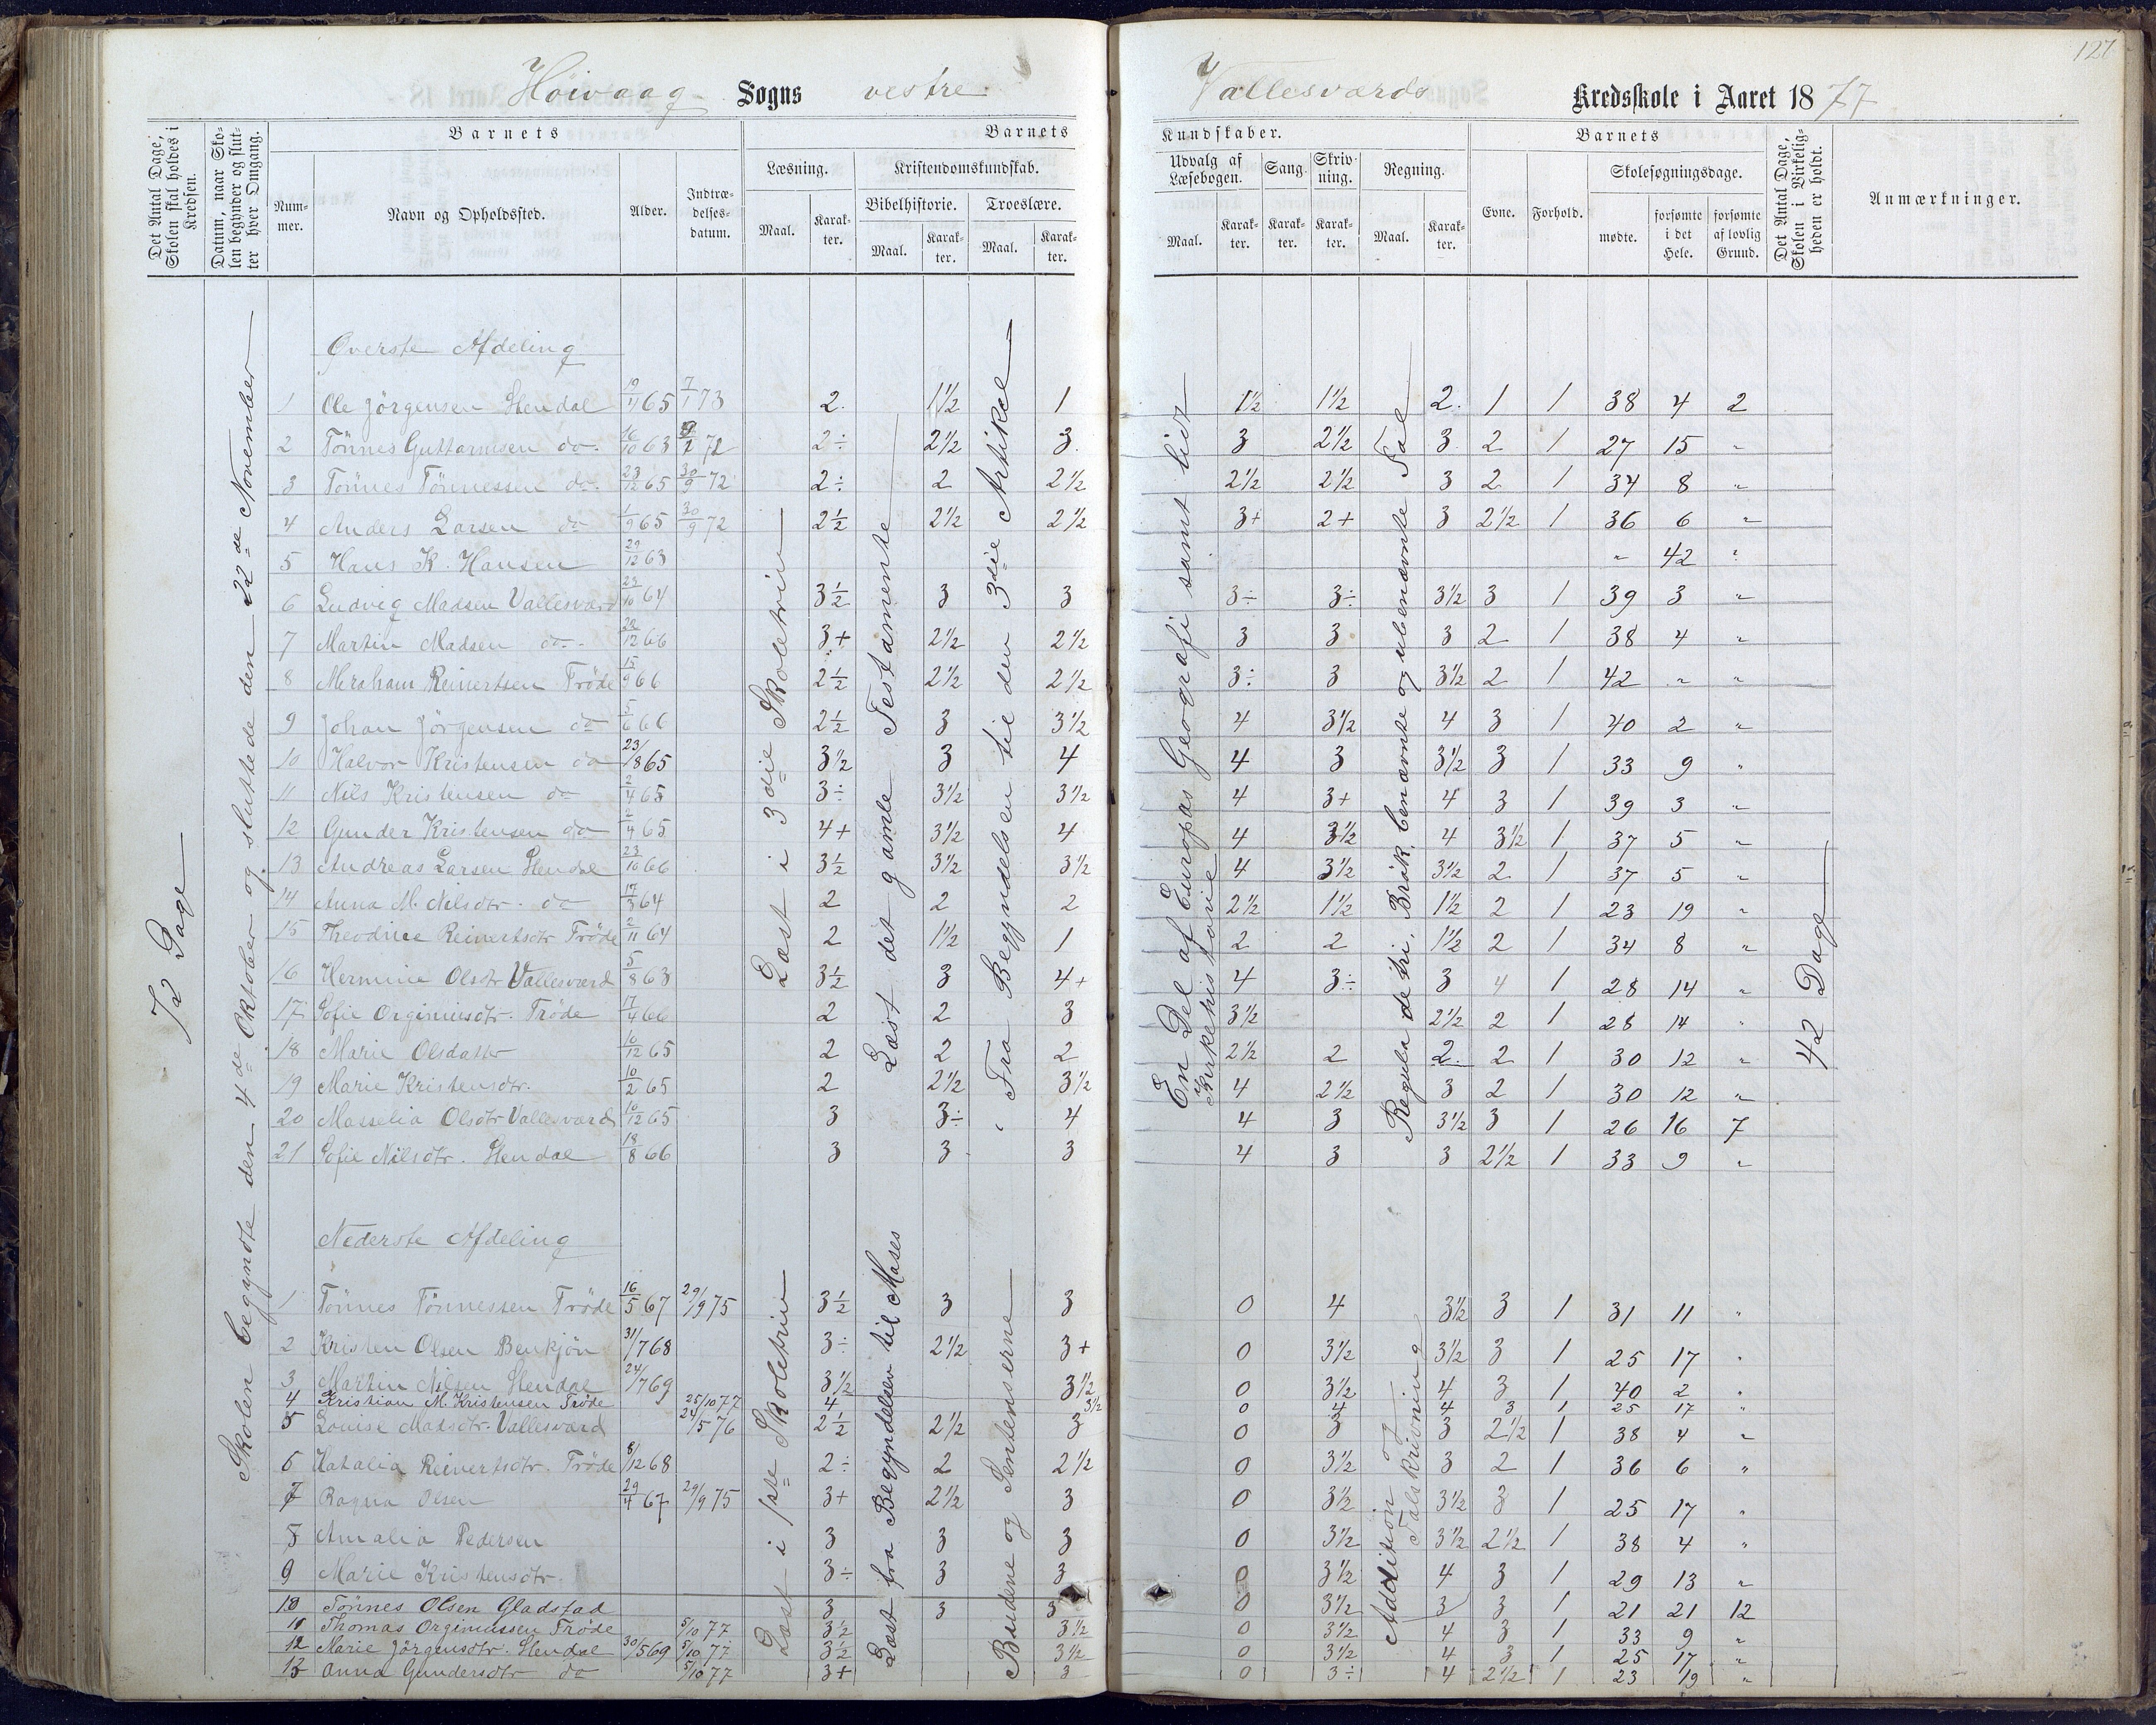 127
Høivaag Sogns vestre Vallesværds Kredsskole i Aaret 1877
Det Antal Dage, Skolen skal holdes i Kredsen.
Datum, naar Skolen begynder og slutter hver Omgang.
Barnets
Nummer.
Navn og Opholdssted.
Alder.
Indtrædelsesdatum.
Barnets Kundskaber.
Læsning.
Maal. Karakter.
Kristendomskundskab.
Bibelhistorie. Troeslære.
Maal. Karakter. Maal. Karakter.
Udvalg af Læsebogen.
Maal. Karakter.
Sang. Karakter.
Skrivning. Karakter.
Regning.
Maal. Karakter.
Barnets
Evne. Forhold.
Skolesøgningsdage.
mødte. forsømte i det Hele. forsømte af lovlig Grund.
Det Antal Dage, Skolen i Virkeligheden er holdt.
Anmærkninger.
72 Dage
Skolen begyndte den 4de Oktober og sluttede den 22de November
Øverste Afdeling
Læst i 3die Skoletrin
Læst det gamle Testamente
Fra Begyndelsen til den 3die Artikel
En Del af Europas Geografi samt lidt Kirkehistorie
Regula de tri, Brøk, benævnte og ubenævnte Tal
42 Dage
1 Ole Jörgensen Stendal 19/11 65 7/1 73 2. 1½ 1 1½ 1½ 2. 1 1 38 4 2
2 Tönnes Guttormsen do 16/10 63 72 2÷ 2½ 3. 3 2½ 3 2 1 27 15 "
3 Tönnes Tönnessen do. 23/12 65 30/9 72 2÷ 2 2½ 2½ 2½ 3 2 1 34 8 "
4 Anders Larsen do 1/9 65 30/9 72 2½ 2½ 2½ 3+ 2+ 3 2½ 1 36 6 "
5 Hans K. Hansen 29/12 63 " 42 "
6 Ludvig Madsen Vallesværd 23/10 64 3½ 3 3 3÷ 3÷ 3½ 3 1 39 3 "
7 Martin Madsen do. 28/12 66 3+ 2½ 2½ 3 3 3 2 1 38 4 "
8 Abraham Reinertsen Tröde 15/9 66 2½ 2½ 2½ 3÷ 3 3½ 2 1 42 " "
9 Johan Jörgensen do 5/6 66 2½ 3 3½ 4 3½ 4 3 1 40 2 "
10 Halvor Kristensen do 23/8 65 3½ 3 4 4 3 3½ 3 1 33 9 "
11 Nils Kristensen do 2/4 65 3÷ 3½ 3½ 4 3+ 4 3 1 39 3 "
12 Gunder Kristensen do 2/4 65 4+ 3½ 4 4 3½ 4 3½ 1 37 5 "
13 Andreas Larsen Stendal 23/10 66 3½ 3½ 3½ 4 3½ 3½ 2 1 37 5 "
14 Anna M. Nilsdtr. do 17/3 64 2 2 2 2½ 1½ 1½ 2 1 23 19 "
15 Theodine Reinertsdtr Tröde 2/11 64 2 1½ 1 2 2 1½ 2 1 34 8 "
16 Hermine Olsdtr Vallesværd 5/8 63 3½ 3 4+ 4 3÷ 3 4 1 28 14 "
17 Sofie Orginiusdtr. Tröde 17/4 66 2 2 3 3½ 2½ 2 1 28 14 "
18 Marie Olsdatter 10/12 65 2 2 2 2½ 2 2. 2 1 30 12 "
19 Marie Kristensdtr. 10/2 65 2 2½ 3½ 4 2½ 3 2 1 30 12 "
20 Masselia Olsdtr Vallesværd 10/12 65 3 3÷ 4 4 3 3½ 3 1 26 16 7
21 Sofie Nilsdtr. Stendal 18/8 66 3 3 3 4 3 3 2½ 1 33 9 "
Nederste Afdeling
Læst i 1ste Skoletrin
Læst fra Begyndelsen til Moses
Budene og Sentenserne
Addition og Talskrivning
1 Tönnes Tönnessen Tröde 16/5 67 29/9 75 3½ 3 3 0 4 3½ 3 1 31 11 "
2 Kristen Olsen Benkjön 31/7 68 3÷ 2½ 3+ 0 3½ 3½ 3 1 25 17 "
3 Martin Nilsen Stendal 24/7 69 3½ 3½ 0 3½ 4 3 1 40 2 "
4 Kristian M. Kristensen Tröde 25/10 77 4 3½ 0 4 4 3 1 25 17 "
5 Louise Madsdtr. Vallesværd 24/5 76 2½ 2½ 3 0 3 3 2½ 1 38 4 "
6 Natalia Reinertsdtr. Tröde 8/12 68 2÷ 2 2½ 0 3½ 3 2 1 36 6 "
7 Ragna Olsen 29/4 67 29/9 75 3+ 2½ 3 0 3½ 3½ 3 1 25 17 "
8 Amalia Pedersen 3 3 3 0 3½ 3½ 2½ 1 38 4 "
9 Marie Kristensdtr. 3÷ 3 3 0 3½ 4 3 1 29 13 "
10 Tönnes Olsen Gladstad 3 3 3 0 3½ 3 3 1 21 21 12
11 Thomas Orginiussen Tröde 5/10 77 3½ 3½ 0 3½ 4 3 1 33 9 "
12 Marie Jörgensdtr. Stendal 30/5 69 5/10 77 3½ 3½ 0 3½ 4 3 1 25 17 "
13 Anna Gundersdtr do 5/10 77 3+ 3 0 3÷ 4 2½ 1 23 19 "